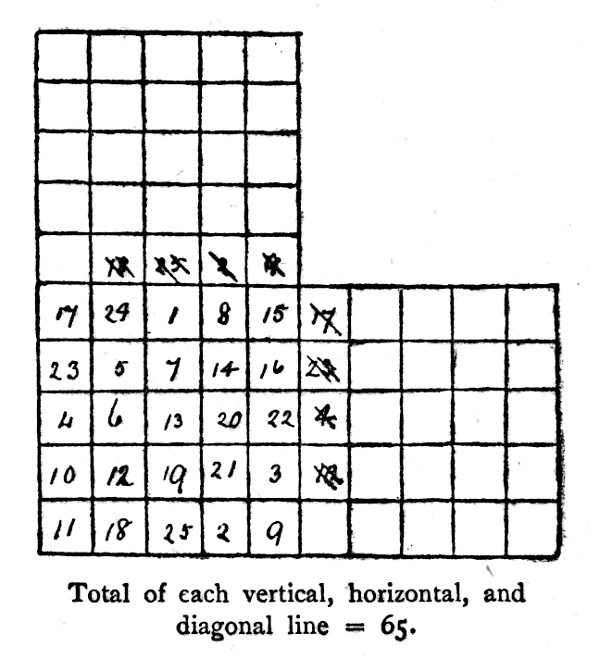 17 24 1 8 15 17
23 5 7 14 16 23
4 6 13 20 22 4
10 12 19 21 3
11 18 25 2 9
Total of each vertical, horizontal, and
diagonal line = 65.